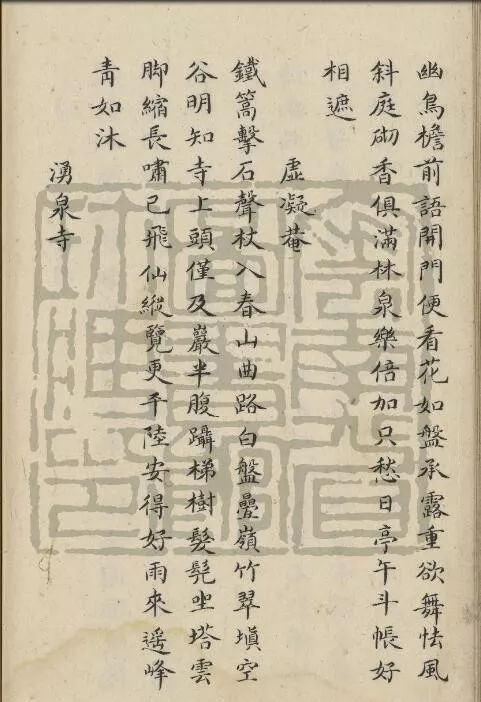 幽鳥檐前語開門便看花如盤承露重欲舞怯風
斜庭砌香俱滿林泉樂倍加只愁日亭午斗帳好
相遮
虛凝菴
鐵篙擊石聲杖入春山曲路白盤疊嶺竹翠塡空
谷明知寺上頭僅及巖半腹躡梯樹髮髡坐塔雲
脚縮長嘯已飛仙縱覽更平陸安得好雨來遥峰
青如沐
湧泉寺